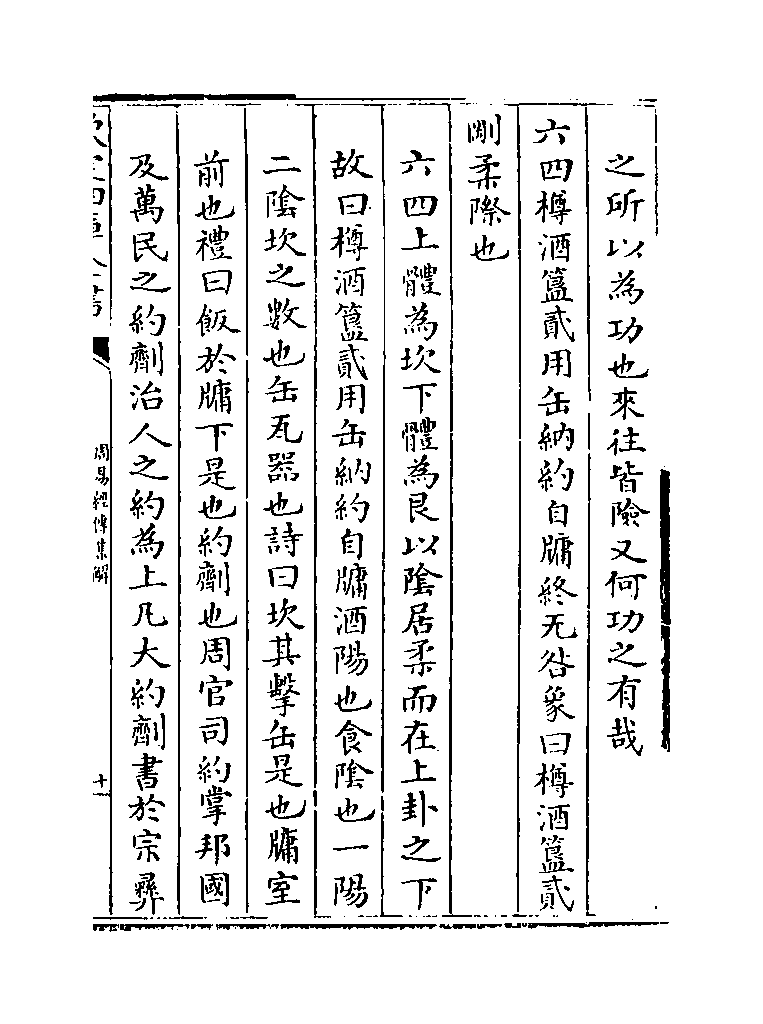 之所以為功也來往皆險又何功之有哉
六四樽酒簋貳用缶納約自牖終无咎象曰樽酒簋貳
剛柔際也
六四上體為坎下體為艮以陰居柔而在上卦之下
故曰樽酒簋貳用缶納約自牖酒陽也食陰也一陽
二陰坎之數也缶瓦器也詩曰坎其擊缶是也牖室
前也禮曰飯於牖下是也約劑也周官司約掌邦國
及萬民之約劑治人之約為上凡大約劑書於宗彞
欽定四庫全書
周易經傳集解
十一